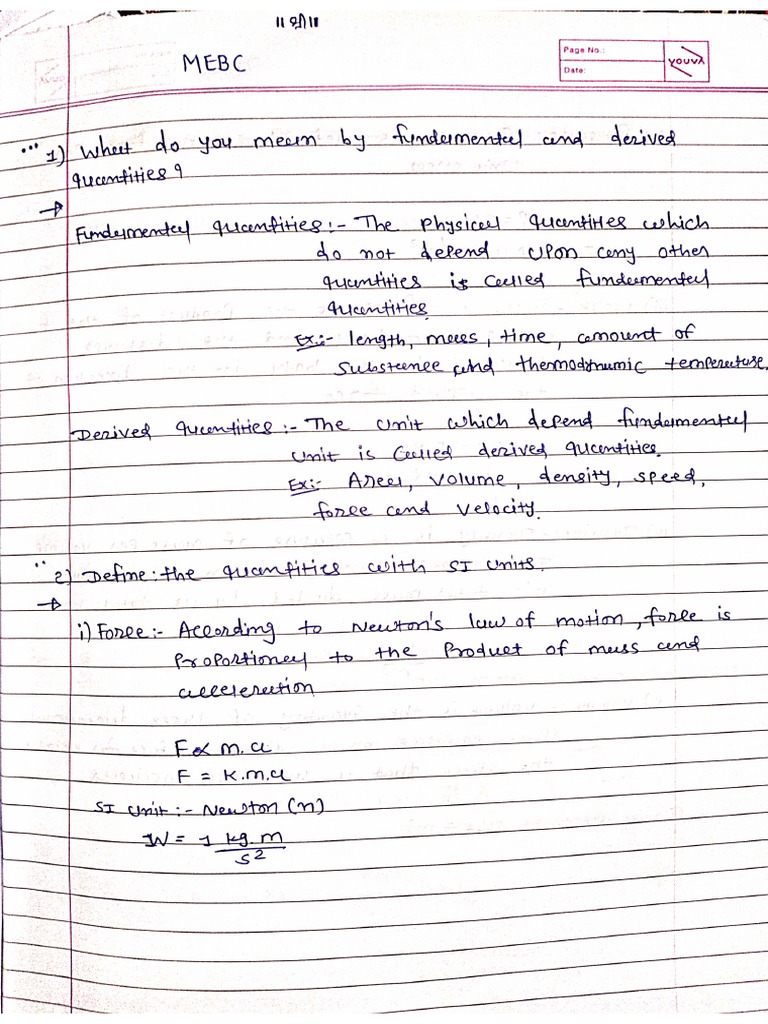 ॥ श्री ॥
MEBC
Page No.:
Date:
youva
1) What do you mean by fundamental and derived
quantities ?
→
Fundamental quantities :- The Physical quantities which
do not depend upon any other
quantities is called fundamental
quantities.
Ex:- length, mass, time, amount of
substance and thermodynamic temperature.
Derived quantities :- The unit which depend fundamental
unit is called derived quantities.
Ex:- Area, volume, density, speed,
force and velocity.
2) Define : the quantities with SI units.
→
i) Force :- According to Newton's law of motion, force is
proportional to the product of mass and
acceleration
F ∝ m.a
F = K.m.a
SI unit :- Newton (n)
1N = 1 kg.m
s²